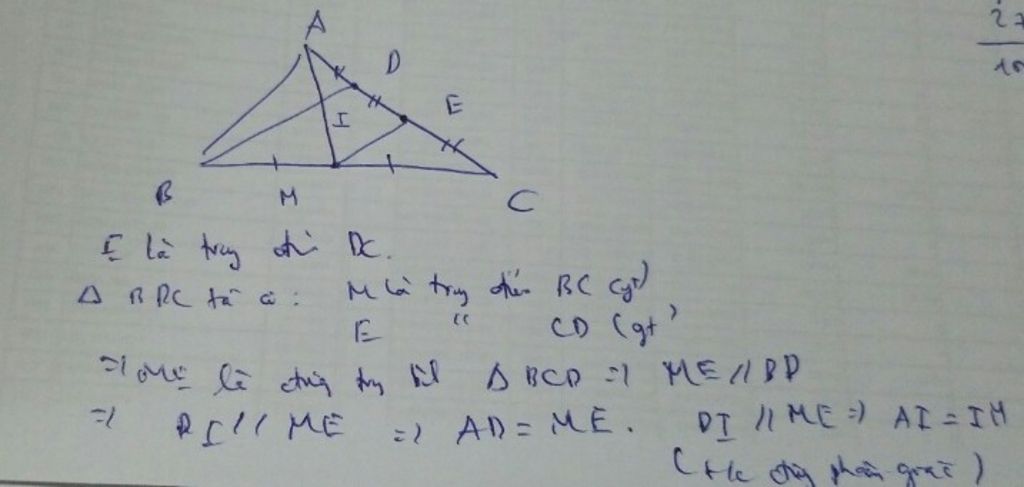 A
D
E
I
B M C
E là trung điểm DC.
Δ BDC ta có: M là trung điểm BC (gt)
E " CD (gt)
=> ME là đường trung bình Δ BCD => ME // BD
=> DI // ME => AD = ME. DI // ME => AI = IM
(t/c đường )